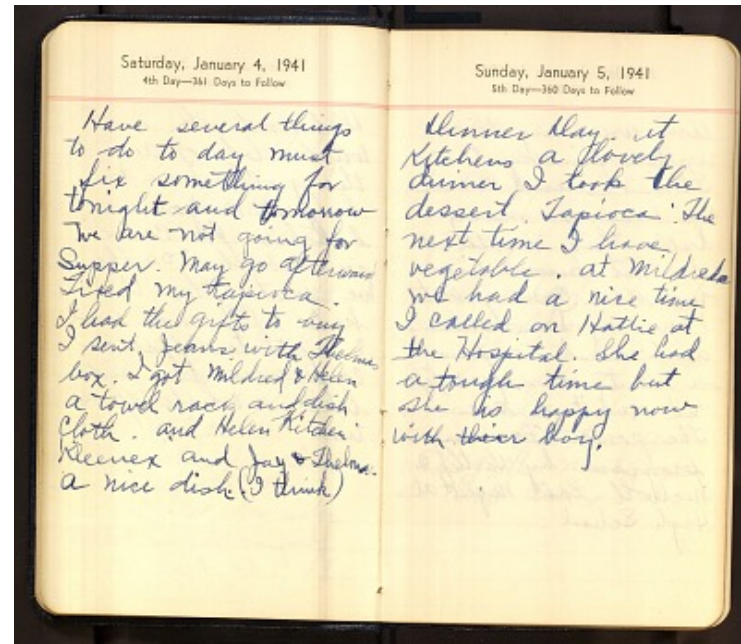 Saturday, January 4, 1941
4th Day—361 Days to Follow
Have several things
to do to day must
fix something for
tonight and tomorrow
We are not going for
Supper. May go afterward
Fixed my tapioca.
I had the gifts to buy
I sent Jeans with Thelmas
box. I got Mildred & Helen
a towel rack and dish
cloth. and Helen Kitchen
Kleenex and Jay & Thelma
a nice dish (I think)
Sunday, January 5, 1941
5th Day—360 Days to Follow
Dinner Day. at
Kitchens a lovely
dinner I took the
dessert Tapioca. The
next time I have
vegetable. at Mildreds
we had a nice time
I called on Hattie at
the Hospital. She had
a tough time but
she is happy now
with their boy.